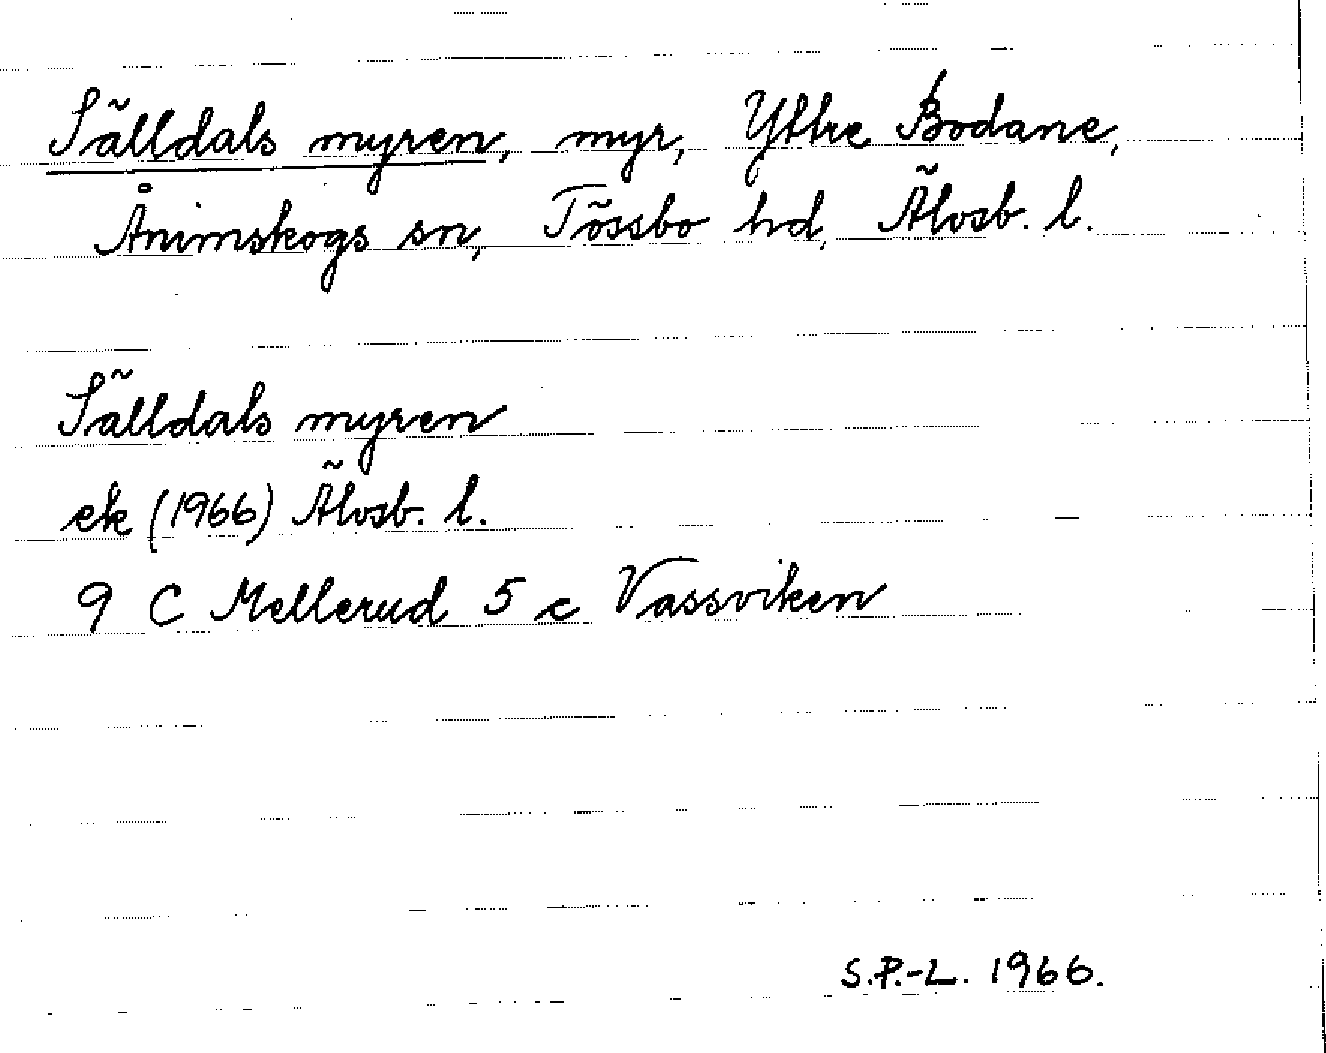 Sälldals myren, myr, Yttre Bodane,
Ånimskogs sn, Tössbo hd, Älvsb. l.
Sälldals myren
ek (1966) Älvsb. l.
9 C Mellerud 5 c Vassviken
S.P.-L. 1966.